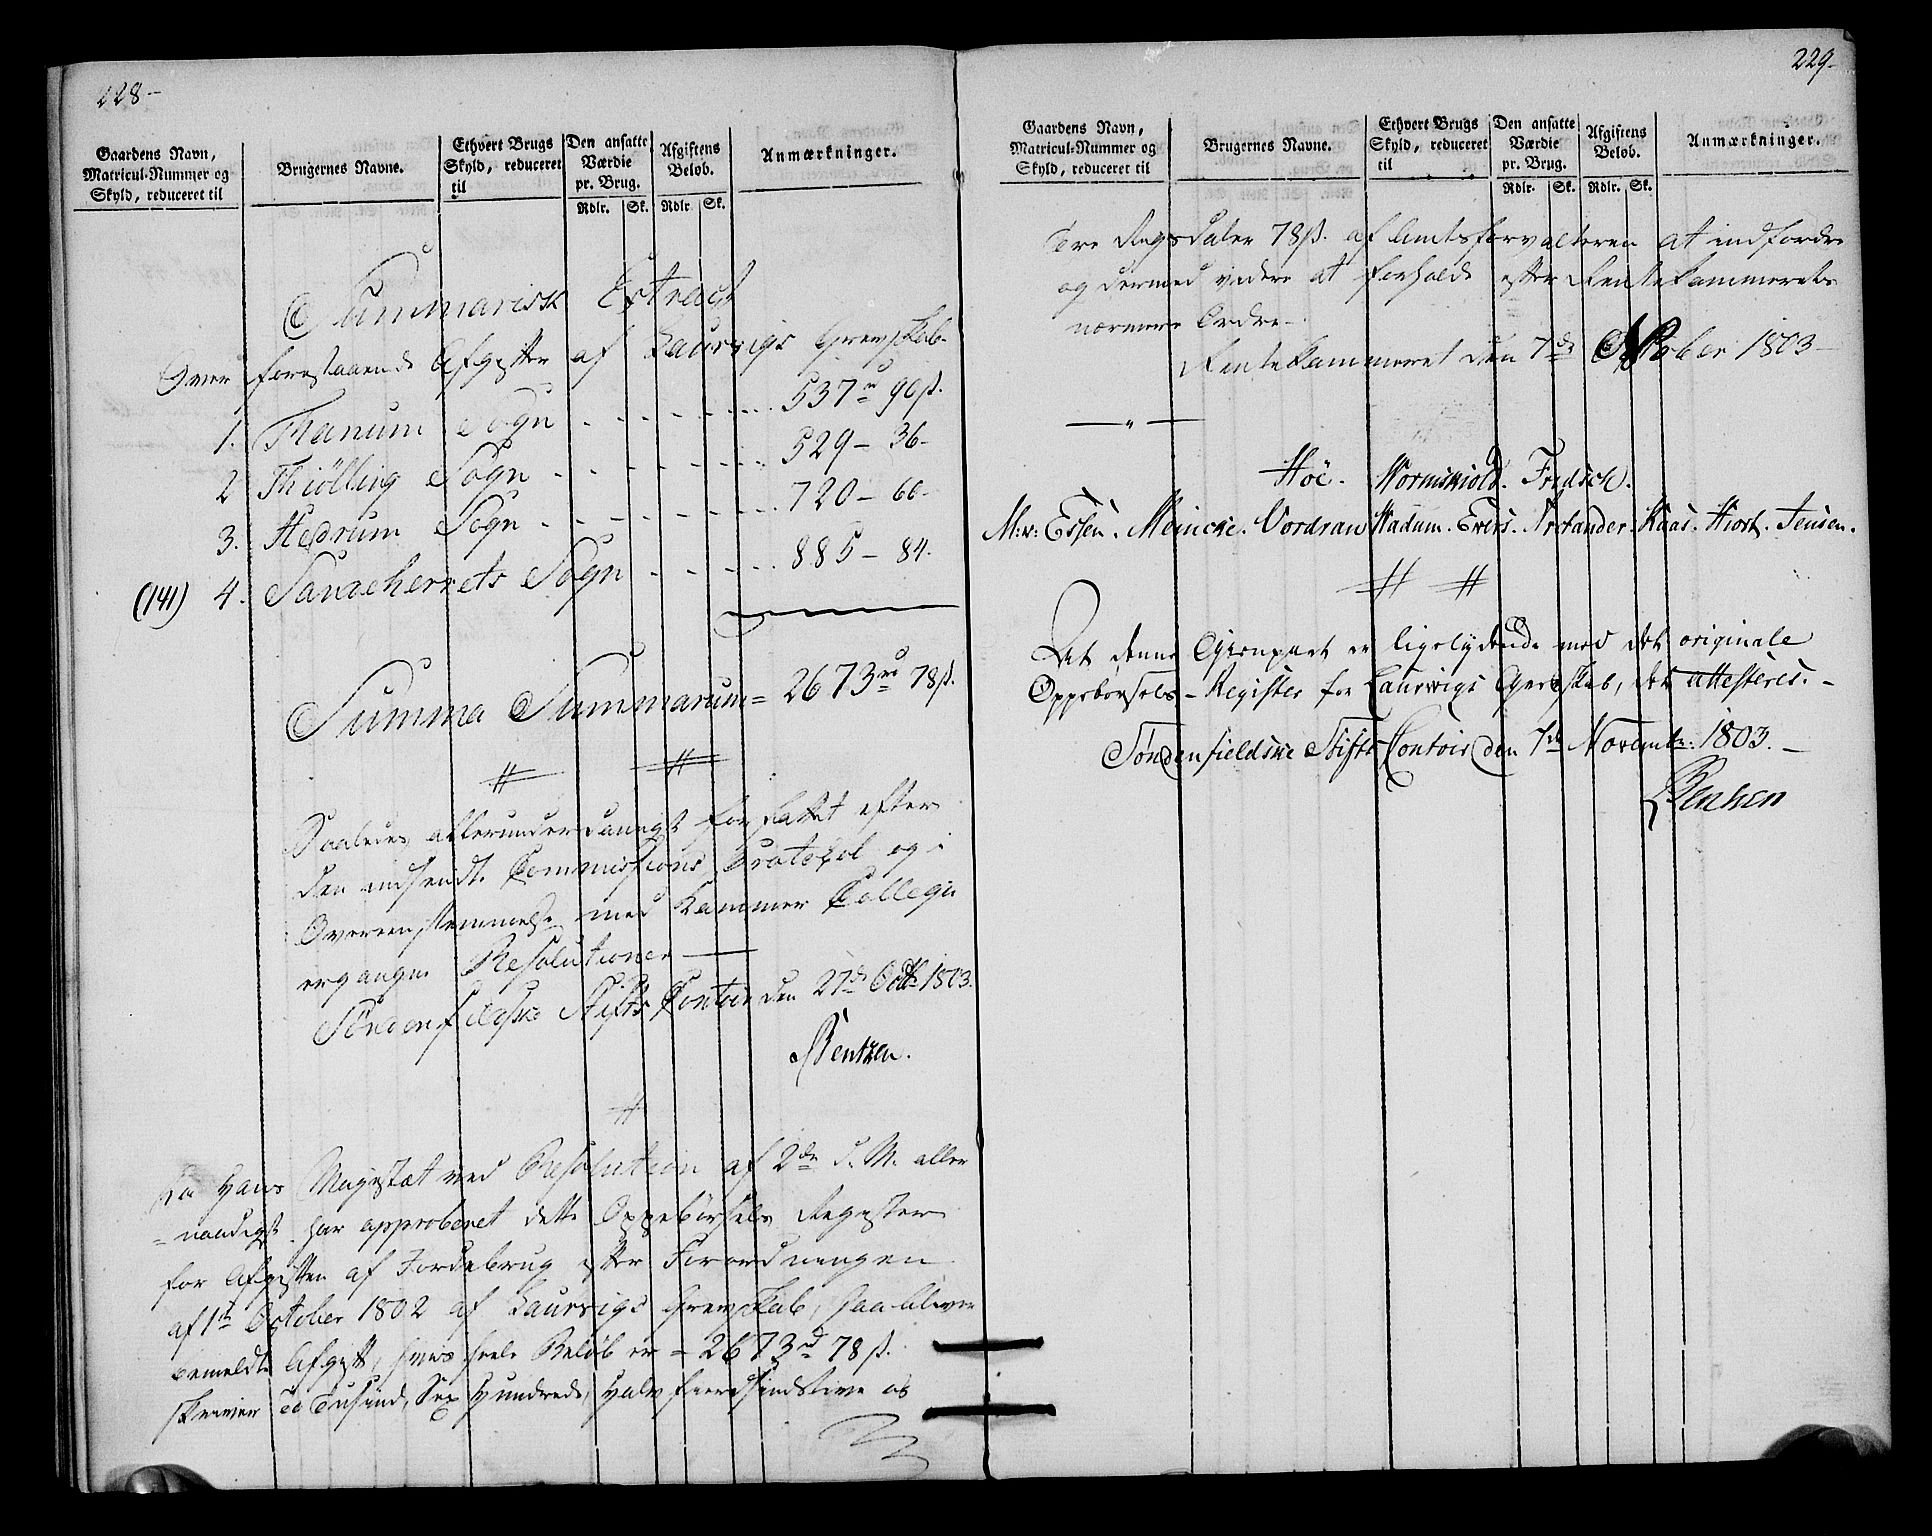 228-
Gaardens Navn, Matricul-Nummer og Skyld, reduceret til
Brugernes Navne.
Ethvert Brugs Skyld, reduceret til
Den ansatte Værdie pr. Brug.
Rdlr. Sk.
Afgiftens Beløb.
Rdlr. Sk.
Anmærkninger.
Summarisk Extract
Over forestaaende Afgifter af Laurvigs Grevskab.
1. Thanum Sogn 537 rd 90 ß.
2 Thiølling Sogn 529 - 36 -
3. Hedrum Sogn 720 - 66 -
(141) 4. Sandeherrets Sogn 885 - 84.
Summa Summarum = 2673 rd 78 ß.
Saaledes allerunderdanigst forfattet efter
den indsendte Commissions Protokol og i
Overeensstemmelse med Kammer Collegii
ergangne Resolutioner
Søndenfieldske Stifts Contoir den 27de Octb. 1803.
Bentzen.
Da Hans Majestæt ved Resolution af 2den d. M. aller
= naadigst har approberet dette Oppebørsels Register
for Afgiften af Jordebrug efter Forordningen
af 1te October 1802 af Laurvigs Grevskab, saa bliver
bemeldte Afgift, hvis heele Beløb er = 2673 rd 78 ß.
skriver To Tusind, Sex Hundrede, Halvfierdsindstive og
229-
Gaardens Navn, Matricul-Nummer og Skyld, reduceret til
Brugernes Navne.
Ethvert Brugs Skyld, reduceret til
Den ansatte Værdie pr. Brug.
Rdlr. Sk.
Afgiftens Beløb.
Rdlr. Sk.
Anmærkninger.
Tre Rigsdaler 78 ß. af Amtsforvalteren at indfordre
og dermed videre at forholde efter Rentekammerets
nærmere Ordre.
Rentekammeret den 7de 1803
Høe. Wormskiold. Fredsch.
M: v: Essen. Meincke. Vordrau Wadum. Evers. Kaas. Hiort. Jensen.
At denne Gienpart er ligelydende med det originale
Oppebørsels-Register for Laurwigs Grevskab, det attesteres. -
Søndenfieldske Stifts Contoir den 7de Novembr: 1803. -
Bentzen